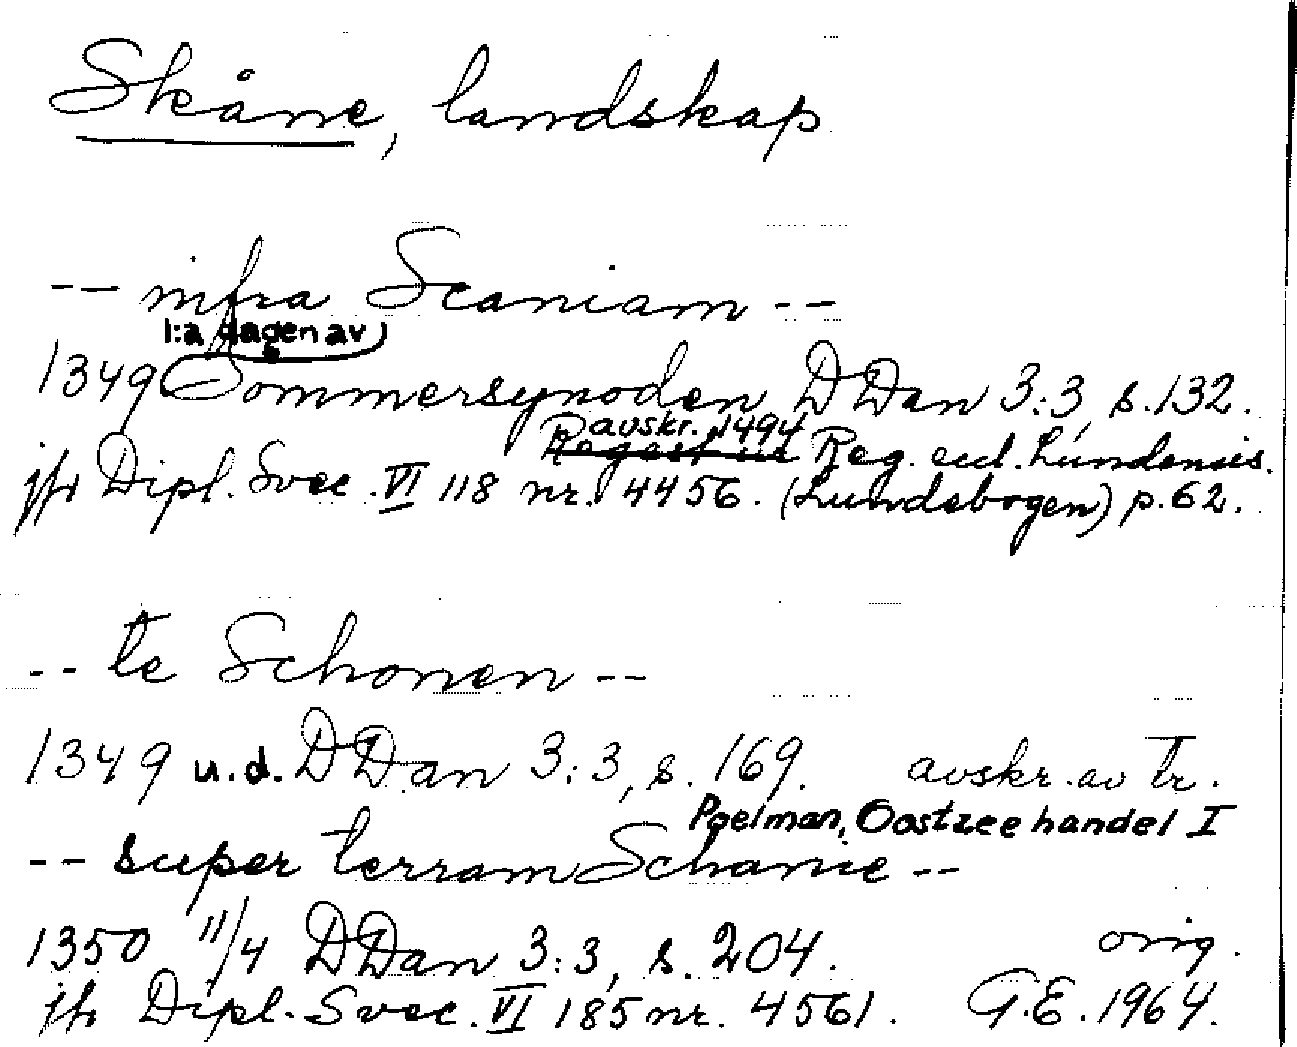 Skåne, landskap
-- infra Scaniam --
1:a dagen av
1349 Sommersynoden DDan 3:3, s. 132.
avskr. 1494
Regest ur Reg. eccl. Lundensis.
jfr Dipl. Svec. VI 118 nr. 4456. (Lundebogen) p. 62.
-- te Schonen --
1349 u.d. DDan 3:3, s. 169. avskr. av tr.
Poelman, Oostzeehandel I
-- super terram Schanie --
1350 11/4 DDan 3:3, s. 204. orig.
jfr Dipl. Svec. VI 185 nr. 4561. G.E. 1964.